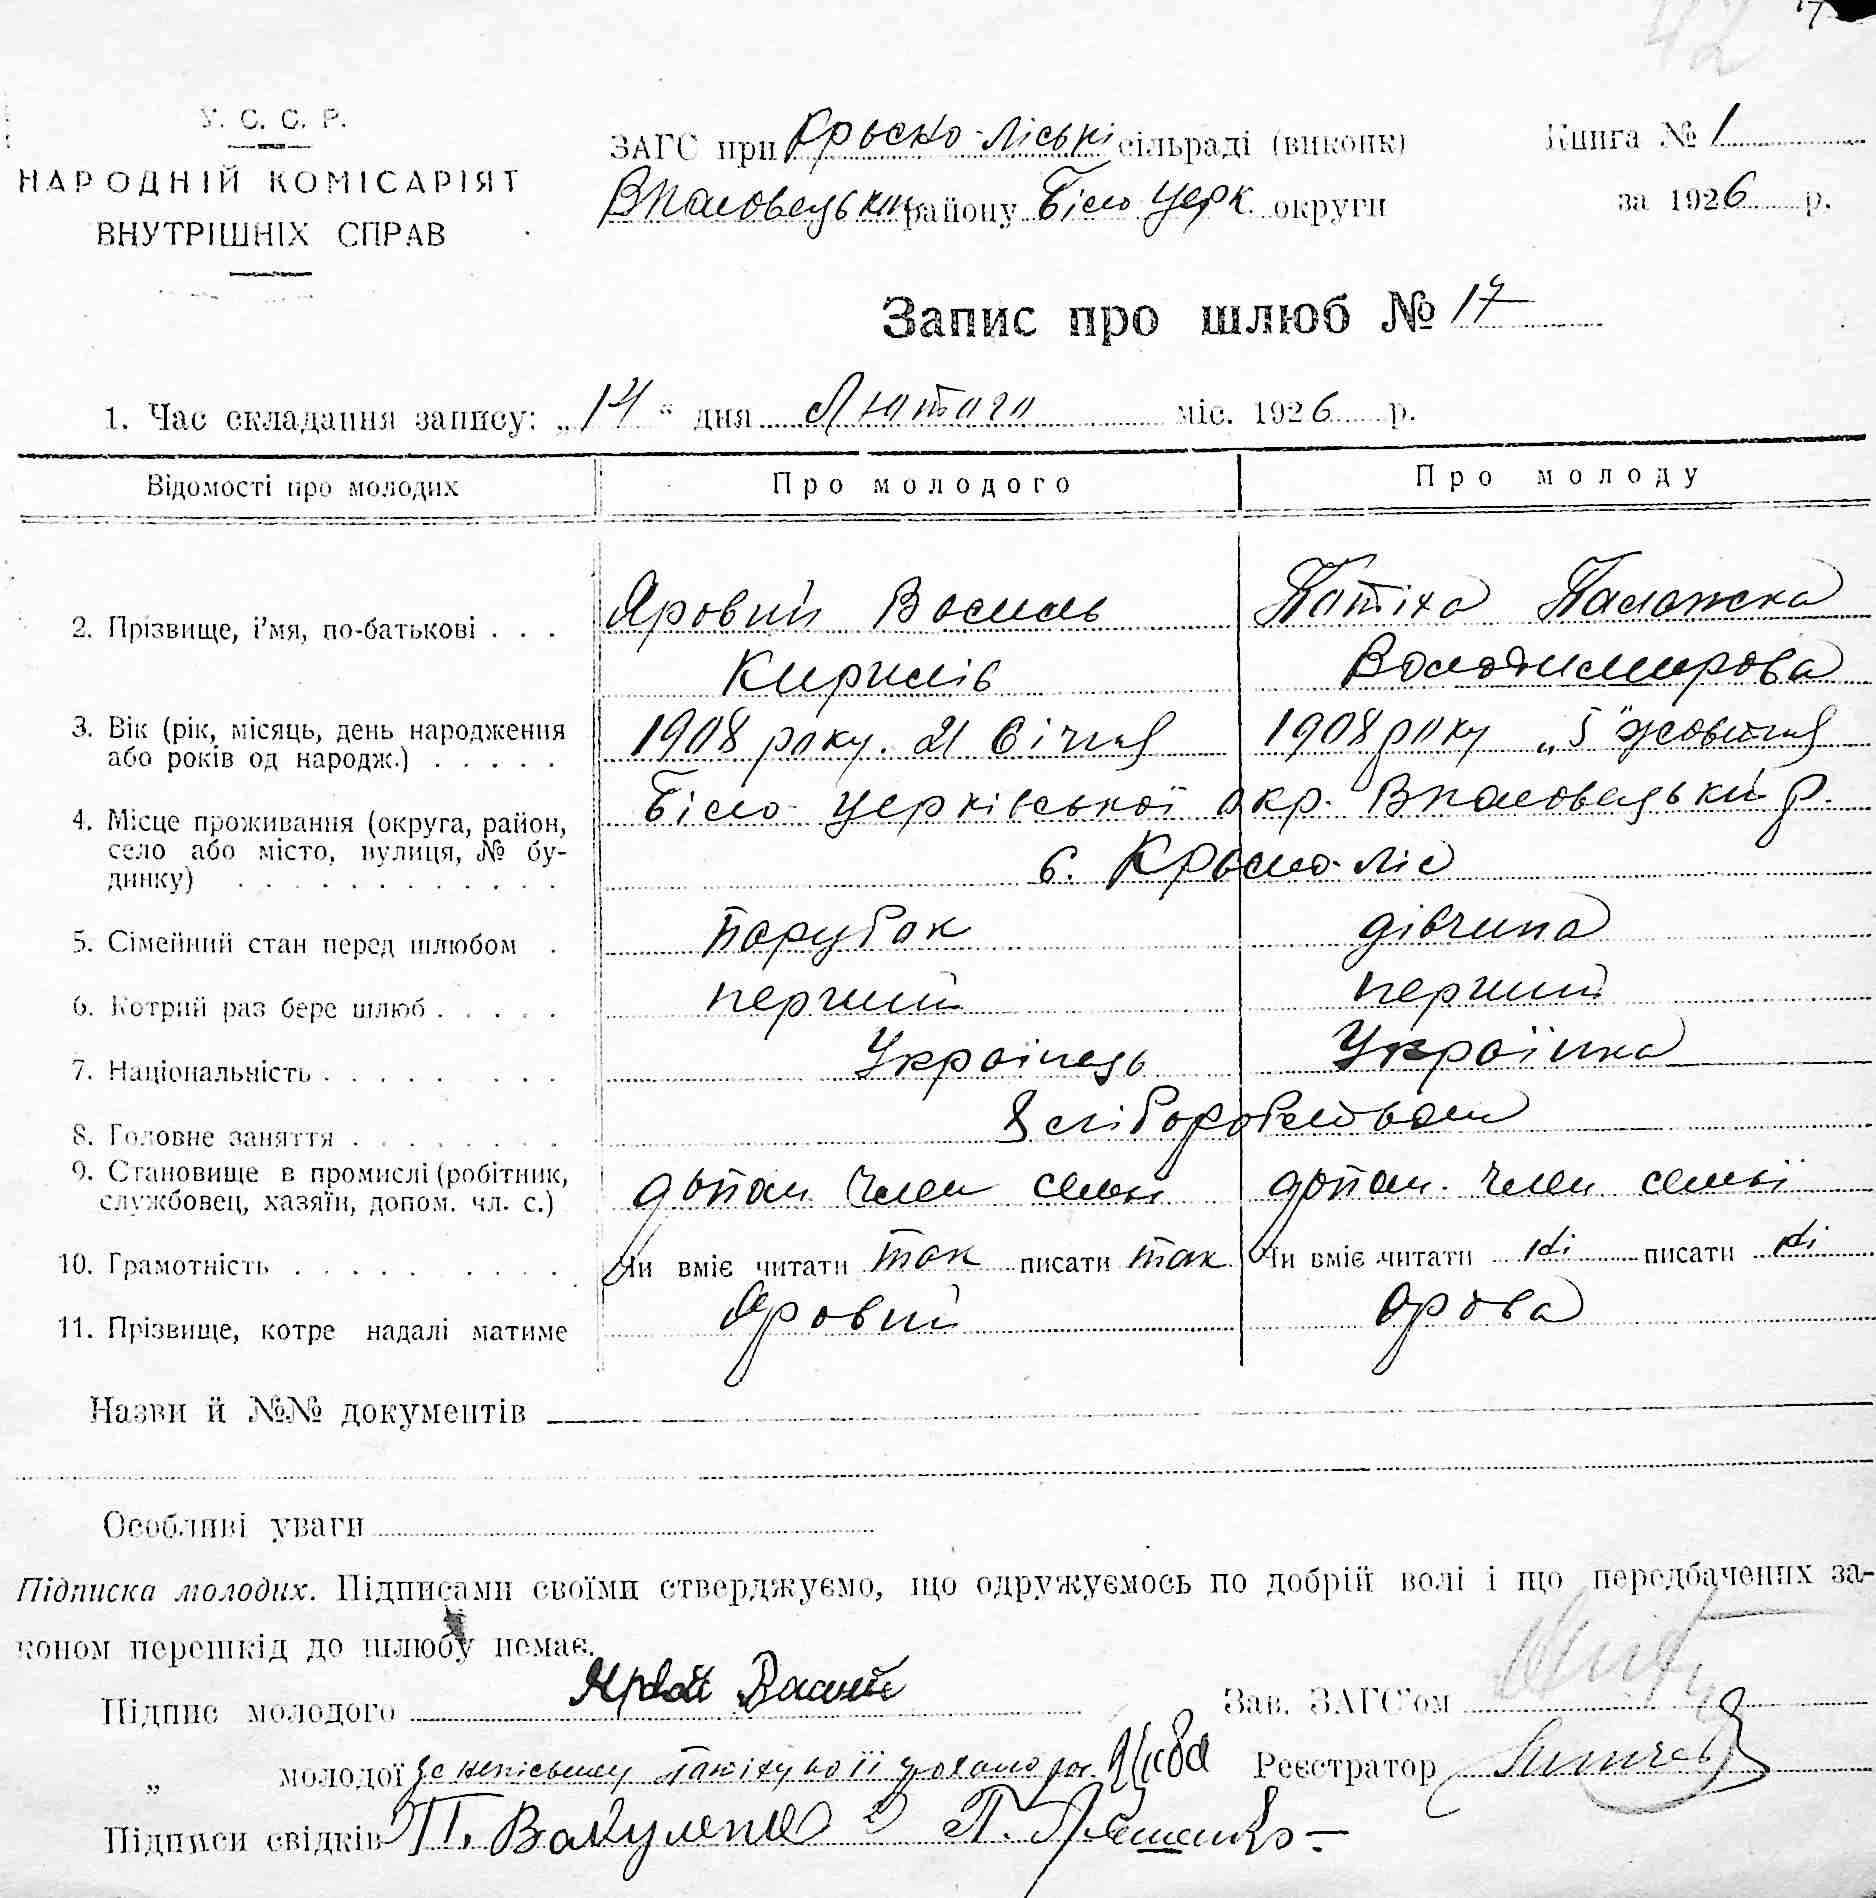 42
У. С. С. Р.
НАРОДНІЙ КОМІСАРІЯТ
ВНУТРІШНІХ СПРАВ
ЗАГС при сільраді (виконк)
району Біло Церк округи
Книга № 1
за 1926 р.
Запис про шлюб № 17
1. Час складання запису: „14“ дня Лютого міс. 1926 р.
Відомості про молодих Про молодого Про молоду
2. Прізвище, і'мя, по-батькові . . . Яровий Василь Потіха Палажка
Кирилів Володимирова
3. Вік (рік, місяць, день народження 1908 року. 21 Січня 1908 року „5" жовтня
або років од народж.) . . . . .
4. Місце проживання (округа, район, Біло-Церківської окр. р.
село або місто, вулиця, № бу- с.
динку) . . . . . . . . . . . .
5. Сімейний стан перед шлюбом . парубок дівчина
6. Котрий раз бере шлюб . . . . . перший перший
7. Національність . . . . . . . . Українець Українка
8. Головне заняття . . . . . . . .
9. Становище в промислі (робітник, допом. член допом. член семьї
службовец, хазяїн, допом. чл. с.)
10. Грамотність . . . . . . . . . Чи вміє читати так писати так Чи вміє читати ні писати ні
11. Прізвище, котре надалі матиме Яровий Ярова
Назви й №№ документів
Особливі уваги
Підписка молодих. Підписами своїми стверджуємо, що одружуємось по добрій волі і що передбачених за-
коном перешкід до шлюбу немає.
Підпис молодого Василь Зав. ЗАГС'ом
„ молодої Реєстратор
Підписи свідків П. Вакуленко